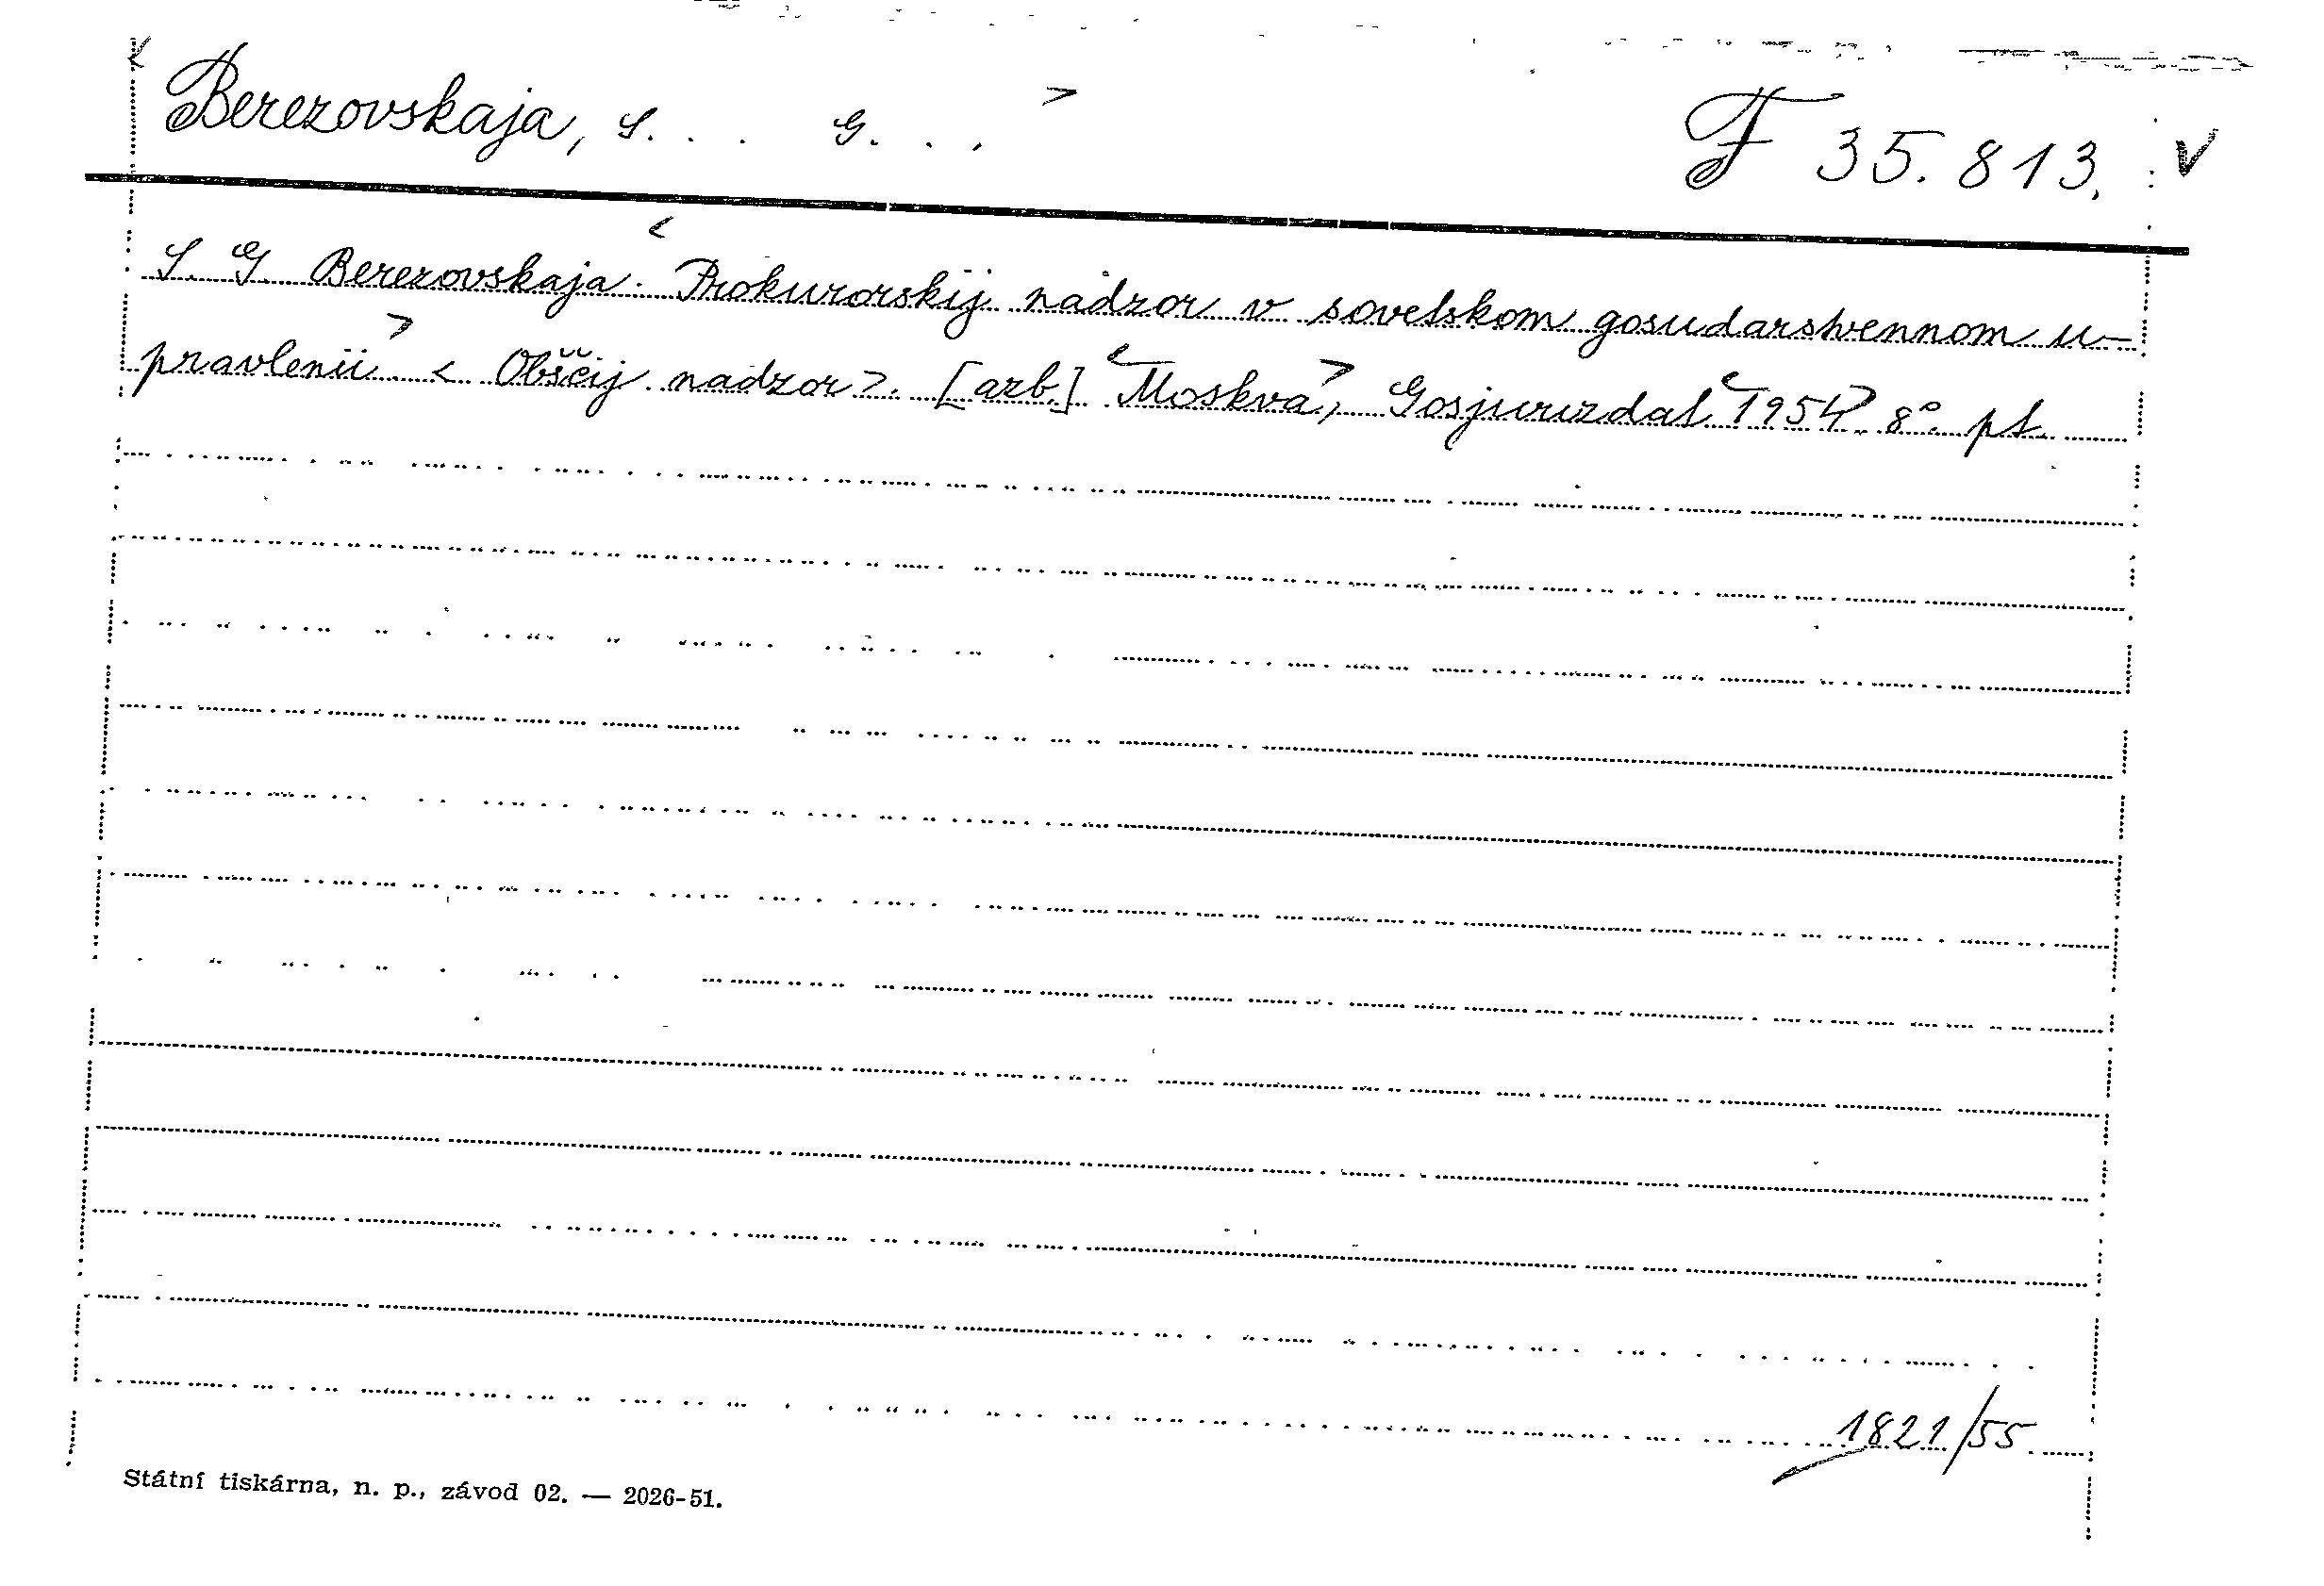 Berezovskaja, S. . . G. . . . F 35.813.
S. G. Berezovskaja. Prokurorskij nadzor v sovetskom gosudarstvennom u-
pravlenii. < Obščij nadzor>. [azb.] Moskva, Gosjurizdat 1954. 8°. pt.
1821/55
Státní tiskárna, n. p., závod 02. — 2026-51.